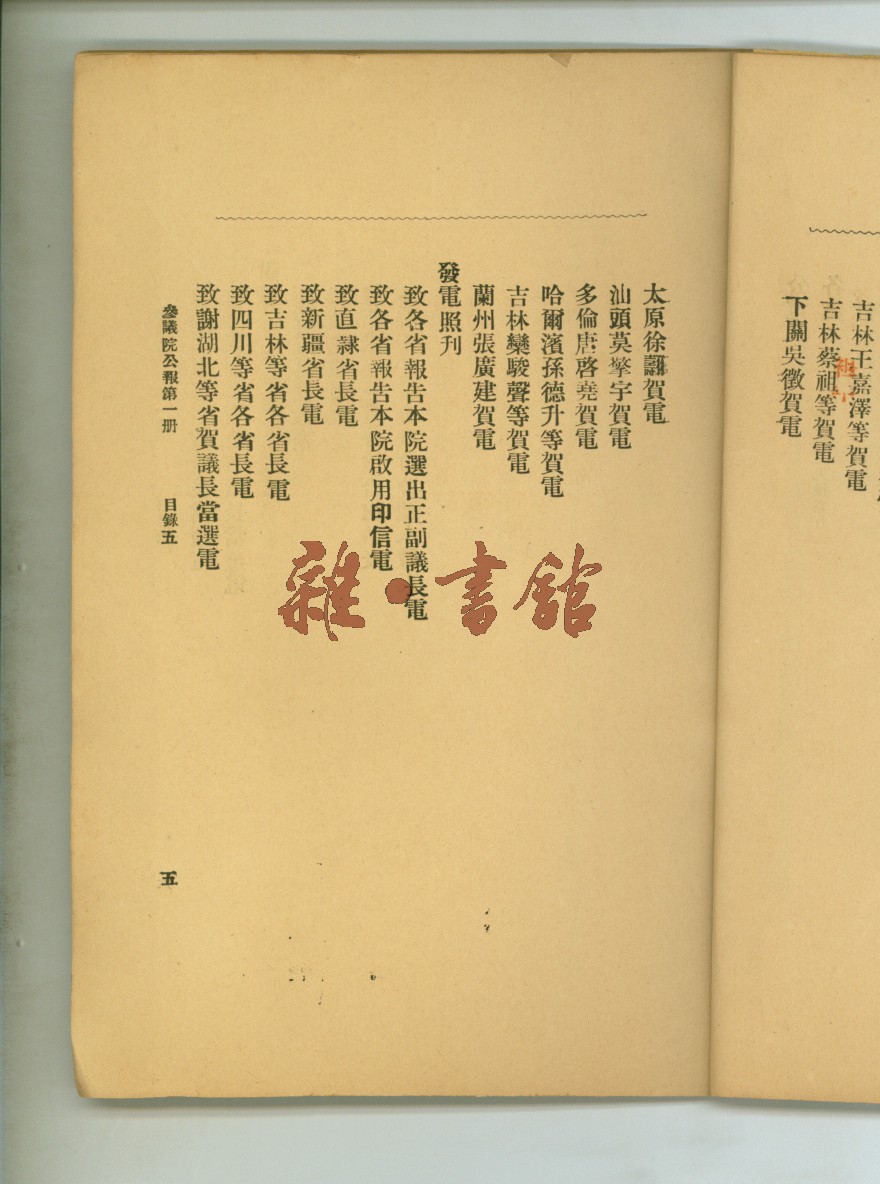 吉林王嘉澤等賀電
吉林蔡祖等賀電
下關吳徵賀電
太原徐翿賀電
汕頭莫擎宇賀電
多倫唐啓堯賀電
哈爾濱孫德升等賀電
吉林欒駿聲等賀電
蘭州張廣建賀電
發電照刊
致各省報告本院選出正副議長電
致各省報告本院啟用印信電
致直隸省長電
致新疆省長電
致吉林等省各省長電
致四川等省各省長電
致謝湖北等省賀議長當選電
參議院公報第一册 目錄五
五
雜·書館